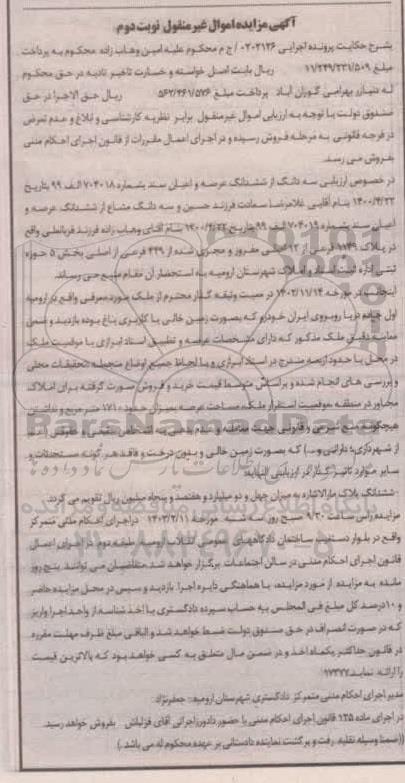 آگهی مزایده اموال غیر منقول نوبت دوم
بشرح حکایت پرونده اجرایی ۰۲۰۲۱۲۶ / ج م محکوم علیه امین وهاب زاده محکوم به پرداخت
مبلغ ۱۱/۲۴۹/۲۳۱/۵۰۹ ریال بابت اصل خواسته و خسارت تاخیر تادیه در حق محکوم
له بهرامی گوران آباد پرداخت مبلغ ۵۶۲/۴۶۱/۵۷۶ ریال حق الاجرا در حق
صندوق دولت با توجه به ارزیابی اموال غیرمنقول برابر نظریه کارشناسی و ابلاغ و عدم تعرض
در فرجه قانونی به مرحله فروش رسیده و در اجرای اعمال مقررات از قانون اجرای احکام مدنی
بفروش می رسد.
در خصوص ارزیابی سه دانگ از ششدانگ عرصه و اعیان سند بشماره ۷۰۴۰۱۸ الف ۹۹ بتاریخ
۱۴۰۰/۴/۲۲ بنام آقایی غلامرضا سعادت فرزند حسین و سه دانگ مشاع از ششدانگ عرصه و
اعیان سند بشماره ۷۰۴۰۱۹ الف ۹۹ بتاریخ ۱۴۰۰/۴/۲۲ بنام آقای وهاب زاده فرزند قربانعلی واقع
در پلاک ۱۱۴۹ فرعی از ۱۲ اصلی مفروز و مجزی شده از ۴۴۹ فرعی از اصلی بخش ۵ حوزه
ثبتی اداره ثبت اسناد و املاک شهرستان ارومیه به استحضار آن مقام می رساند
اینجانب در مورخه ۱۴۰۲/۱۱/۱۴ در معیت وثیقه گذار محترم از ملک مورد معرفی واقع در ارومیه
اول جاده دریا روبروی ایران خودرو که بصورت زمین خالی با کاربری باغ بوده بازدید و ضمن
معاینه دقیق ملک مذکور که دارای مشخصات عرصه و تطبیق اسناد ابرازی با موقعیت ملک
در محل با حدود اربعه مندرج در اسناد ابرازی و با لحاظ جمیع اوضاع منجمله تحقیقات محلی
و بررسی های انجام شده و براساس متوسط قیمت خرید و فروش صورت گرفته برای املاک
مجاور در منطقه موقعیت استقرار ملک، مساحت عرصه بمیزان حدود ۱۷۱۰ متر مربع و نداشتن
هیچگونه منع شرعی و قانونی جهت معامله و عدم بدهی به اشخاص حقیقی و حقوقی (اعم
از شهرداری، دارایی و...) که بصورت زمین خالی و بدون درخت و فاقد هر گونه مستحدثات و
سایر موارد تاثیر گذار در ارزیابی
ششدانگ پلاک مارالاشاره به میزان چهل و دو میلیارد و هفتصد و پنجاه میلیون ریال تقویم می گردد.
مزایده راس ساعت ۹/۳۰ صبح روز سه شنبه مورخه ۱۴۰۳/۲/۱۱ در اجرای احکام مدنی متمرکز
واقع در بلوار دستغیب ساختمان دادگاههای عمومی انقلاب ارومیه طبقه دوم در اجرای اعمال
قانون اجرای احکام مدنی در سالن اجتماعات برگزار خواهد شد. متقاضیان می توانند پنج روز
مانده به مزایده از مورد مزایده، با هماهنگی دایره اجرا بازدید و سپس در محل مزایده حاضر
و ۱۰درصد کل مبلغ فی المجلس به حساب سپرده دادگستری با اخذ شناسه از واحد اجرا واریز
که در صورت انصراف در حق صندوق دولت ضبط خواهد شد و الباقی مبلغ ظرف مهلت مقرره
در قانون حداکثر یکماه اخذ و در ضمن مال متعلق به کسی خواهد بود که بالاترین قیمت
را ارائه نماید. ۹۷۲۷۷
مدیر اجرای احکام مدنی متمرکز دادگستری شهرستان ارومیه - جعفرنژاد
در اجرای ماده ۱۳۵ قانون اجرای احکام مدنی با حضور دادورز اجرائی آقای قزلباش بفروش خواهد رسید.
((ضمنا وسیله نقلیه رفت و برگشت نماینده دادستانی بر عهده محکوم له می باشد.))
ParsNamadData
پایگاه اطلاع رسانی مناقصه و مزایده
۰۲۱-۸۸۳۴۹۶۷۰-۵